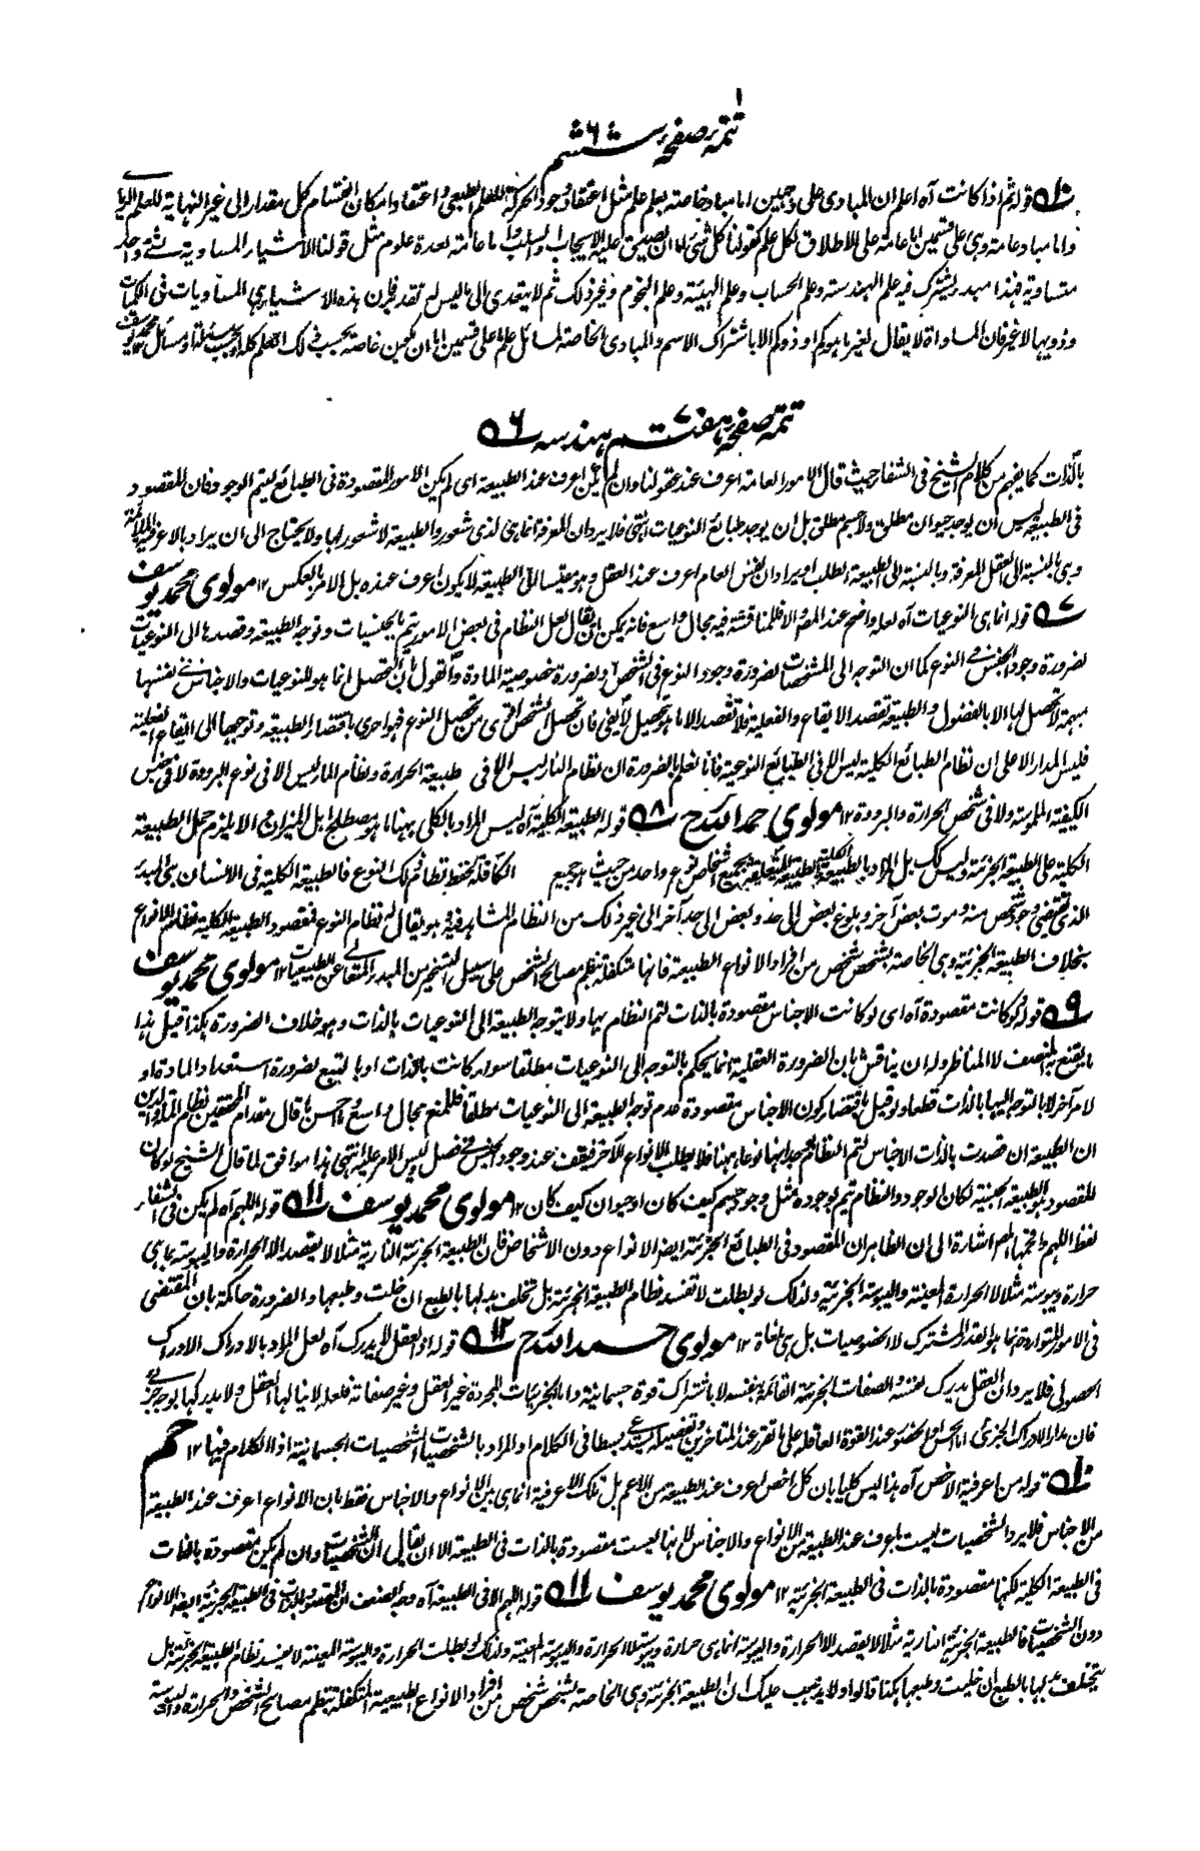 ١
تتمہ صفحہ ششم
١٠ قوله ثم اذا كانت آه اعلم ان المبادى على وجهين اما مباد خاصة بعلم علم مثل اعتقاد وجود الحركة للعلم الطبيعى واعتقاد امكان انقسام كل مقدار الى غير النهاية للعلم الرياضى
واما مباد عامة وهى على قسمين اما عامة على الاطلاق لكل علم كقولنا كل شئ اما ان يصدق عليه الايجاب او السلب واما عامة لعدة علوم مثل قولنا الاشياء المساوية لشئ واحد
متساوية فهذا مبدء يشترك فيه علم الهندسة وعلم الحساب وعلم الهيئة وعلم النجوم وغير ذلك ثم لا يتعدى الى ما ليس له تقدر فان هذه الاشياء هى المساويات فى الكميات
وذويها لا غير فان المساواة لا يقال لغير ما هو كم او ذو كم الا باشتراك الاسم والمبادى الخاصة لمسائل علم ما على قسمين اما ان يكون خاصة بحسب ذلك العلم كله او بحسب مسئلة او مسائل ١٢ محمد يوسف
تتمہ صفحہ ہفتم ہندسہ ٦
بالذات كما يفهم من كلام الشيخ فى الشفا حيث قال الامور العامة اعرف عند عقولنا وان لم يكن اعرف عند الطبيعة اى لم يكن الامور المقصودة فى الطبائع ليتم الوجود فان المقصود
فى الطبيعة ليس ان يوجد حيوان مطلق ولا جسم مطلق بل ان يوجد طبائع النوعيات انتهى فلا يرد ان المعرفة انما هى لذى شعور والطبيعة لا شعور لها ولا يحتاج الى ان يراد بالاعرفية الملائمة
وهى بالنسبة الى العقل المعرفة وبالنسبة الى الطبيعة الطلب او يراد ان نفس العام اعرف عند العقل وهو مقيسا الى الطبيعة لا يكون اعرف عنده بل الامر بالعكس ١٢ مولوى محمد يوسف
٧ قوله انما هى النوعيات آه لعله واضح عند المصنف والا فللمناقشة فيه مجال واسع فانه يمكن ان يقال لعل النظام فى بعض الامور يتم بالجنسيات وتوجه الطبيعة وقصدها الى النوعيات
لضرورة وجود الجنس فى النوع كما ان التوجه الى المشخصات لضرورة وجود النوع فى الشخص ولضرورة خصوصية المادة واقول ان التحصل انما هو للنوعيات والاجناس فى نفسها
مبهمة لا تحصل لها الا بالفصول والطبيعة تقصد الايقاع والفعلية فلا تقصد الا ما هو تحصيل لا يغنى فان تحصل الشخص اقوى من تحصيل النوع فهو احرى باقتضاء الطبيعة وتوجهها الى ايقاع الفعلية
فليس المدار الا على ان نظام الطبائع الكلية ليس الا فى الطبائع النوعية فانا نعلم بالضرورة ان نظام النار ليس الا فى طبيعة الحرارة ونظام الماء ليس الا فى نوع البرودة لا فى جنس
الكيفية الملموسة ولا فى شخص الحرارة والبرودة ١٢ مولوى حمد الله رح ٨ قوله الطبيعة الكلية آه ليس المراد بالكلى ههنا ما هو مصطلح اهل الميزان والا يلزم حمل الطبيعة
الكلية على الطبيعة الجزئية وليس كك بل المراد بالطبيعة الكلية الطبيعة المتعلقة بجميع اشخاص نوع واحد من حيث هو جميع الكافلة لحفظ نظام ذلك النوع فالطبيعة الكلية فى الانسان هى المبدء
الذى يقتضى وجود شخص منه وموت بعض آخر وبلوغ بعض الى حد وبعض الى حد آخر الى غير ذلك من النظام المشاهد فيه وهو يقال له نظام النوع فمقصود الطبيعة الكلية نظام الانواع
بخلاف الطبيعة الجزئية وهى الخاصة بشخص شخص من افراد الانواع الطبيعة فانها متكفلة بنظم مصالح الشخص على سبيل التسخير من المبدء المتعالى عن الطبيعيات ١٢ مولوى محمد يوسف
٩ قوله لو كانت مقصودة آه اى لو كانت الاجناس مقصودة بالذات لتم النظام بها ولا يتوجه الطبيعة الى النوعيات بالذات وهو خلاف الضرورة هكذا قيل هذا
ما يقنع به المنصف لا المناظر وله ان يناقش بان الضرورة العقلية انما يحكم بالتوجه الى النوعيات مطلقا سواء كانت بالذات او بالتبع لضرورة استعداد المادة او
لامر آخر لا بالتوجه اليها بالذات قطعا ولو قيل باقتضاء كون الاجناس مقصودة عدم توجه الطبيعة الى النوعيات مطلقا فللمنع مجال واسع والاحسن ما قال مقدام المحققين نظام الملة والدين
ان الطبيعة ان قصدت بالذات الاجناس لتم النظام بوجدانها نوعا ما هنا فلا يطلب الانواع الآخر فيقف عند وجود الجنس فى فصل وليس الامر عليه انتهى هذا موافق لما قال الشيخ لو كان
المقصود بالطبيعة الجنسية لكان الوجود والنظام يتم بوجوده مثل وجود جسم كيف كان او حيوان كيف كان ١٢ مولوى محمد يوسف ١١ قوله اللهم آه لم يكن فى الشفاء
لفظ اللهم واقحمها المصنف اشارة الى ان الظاهر ان المقصود فى الطبائع الجزئية ايضا الانواع دون الاشخاص فان الطبيعة الجزئية النارية مثلا لا يقصد الا الحرارة واليبوسة بما هى
حرارة ويبوسة مثلا لا الحرارة المعينة واليبوسة الجزئية ولذلك لو بطلت لا تفسد نظام الطبيعة الجزئية بل تخلف بدلها بالطبع ان خليت وطبعها والضرورة حاكمة بان المقتضى
فى الامور المتواردة انما هو القدر المشترك لا الخصوصيات بل هى ملغاة ١٢ مولوى حمد الله رح ١٢ قوله اذ العقل لا يدرك آه لعل المراد بالادراك الادراك
الحصولى فلا يرد ان العقل يدرك نفسه والصفات الجزئية القائمة بنفسه لا باشتراك قوة جسمانية واما الجزئيات المجردة غير العقل وغير صفاته فلعله لا ينالها العقل ولا يدركها بوجه جزئى
فان مدار الادراك الجزئى اما الحس او الحضور عند القوة العاقلة على ما تقرر عند المتاخرين وتفصيله يستدعى بسطا فى الكلام او المراد بالشخصيات الشخصيات الجسمانية اذ الكلام فيها ١٢ حم
١٠ قوله من اعرفية الاخص آه هذا ليس كليا بان كل اخص اعرف عند الطبيعة من الاعم بل تلك الاعرفية انما هى بين الانواع والاجناس فقط بان الانواع اعرف عند الطبيعة
من الاجناس فلا يرد الشخصيات ليست باعرف عند الطبيعة من الانواع والاجناس لانها ليست مقصودة بالذات فى الطبيعة الا ان يقال ان الشخصيات وان لم يكن مقصودة بالذات
فى الطبيعة الكلية لكنها مقصودة بالذات فى الطبيعة الجزئية ١٢ مولوى محمد يوسف ١١ قوله اللهم الا فى الطبيعة آه وجه الضعف ان المقصود بالذات فى الطبيعة الجزئية ايضا الانواع
دون الشخصيات فالطبيعة الجزئية النارية مثلا لا يقصد الا الحرارة واليبوسة انما هى حرارة ويبوسة لا الحرارة واليبوسة المعينة ولذلك لو بطلت الحرارة واليبوسة المعينة لا يفسد نظام الطبيعة الجزئية بل
يتخلف بدلها بالطبع ان خليت وطبعها هكذا قالوا ولا يذهب عليك ان الطبيعة الجزئية وهى الخاصة بشخص شخص من افراد الانواع الطبيعية المتكفلة بنظم مصالح الشخص والحرارة واليبوسة